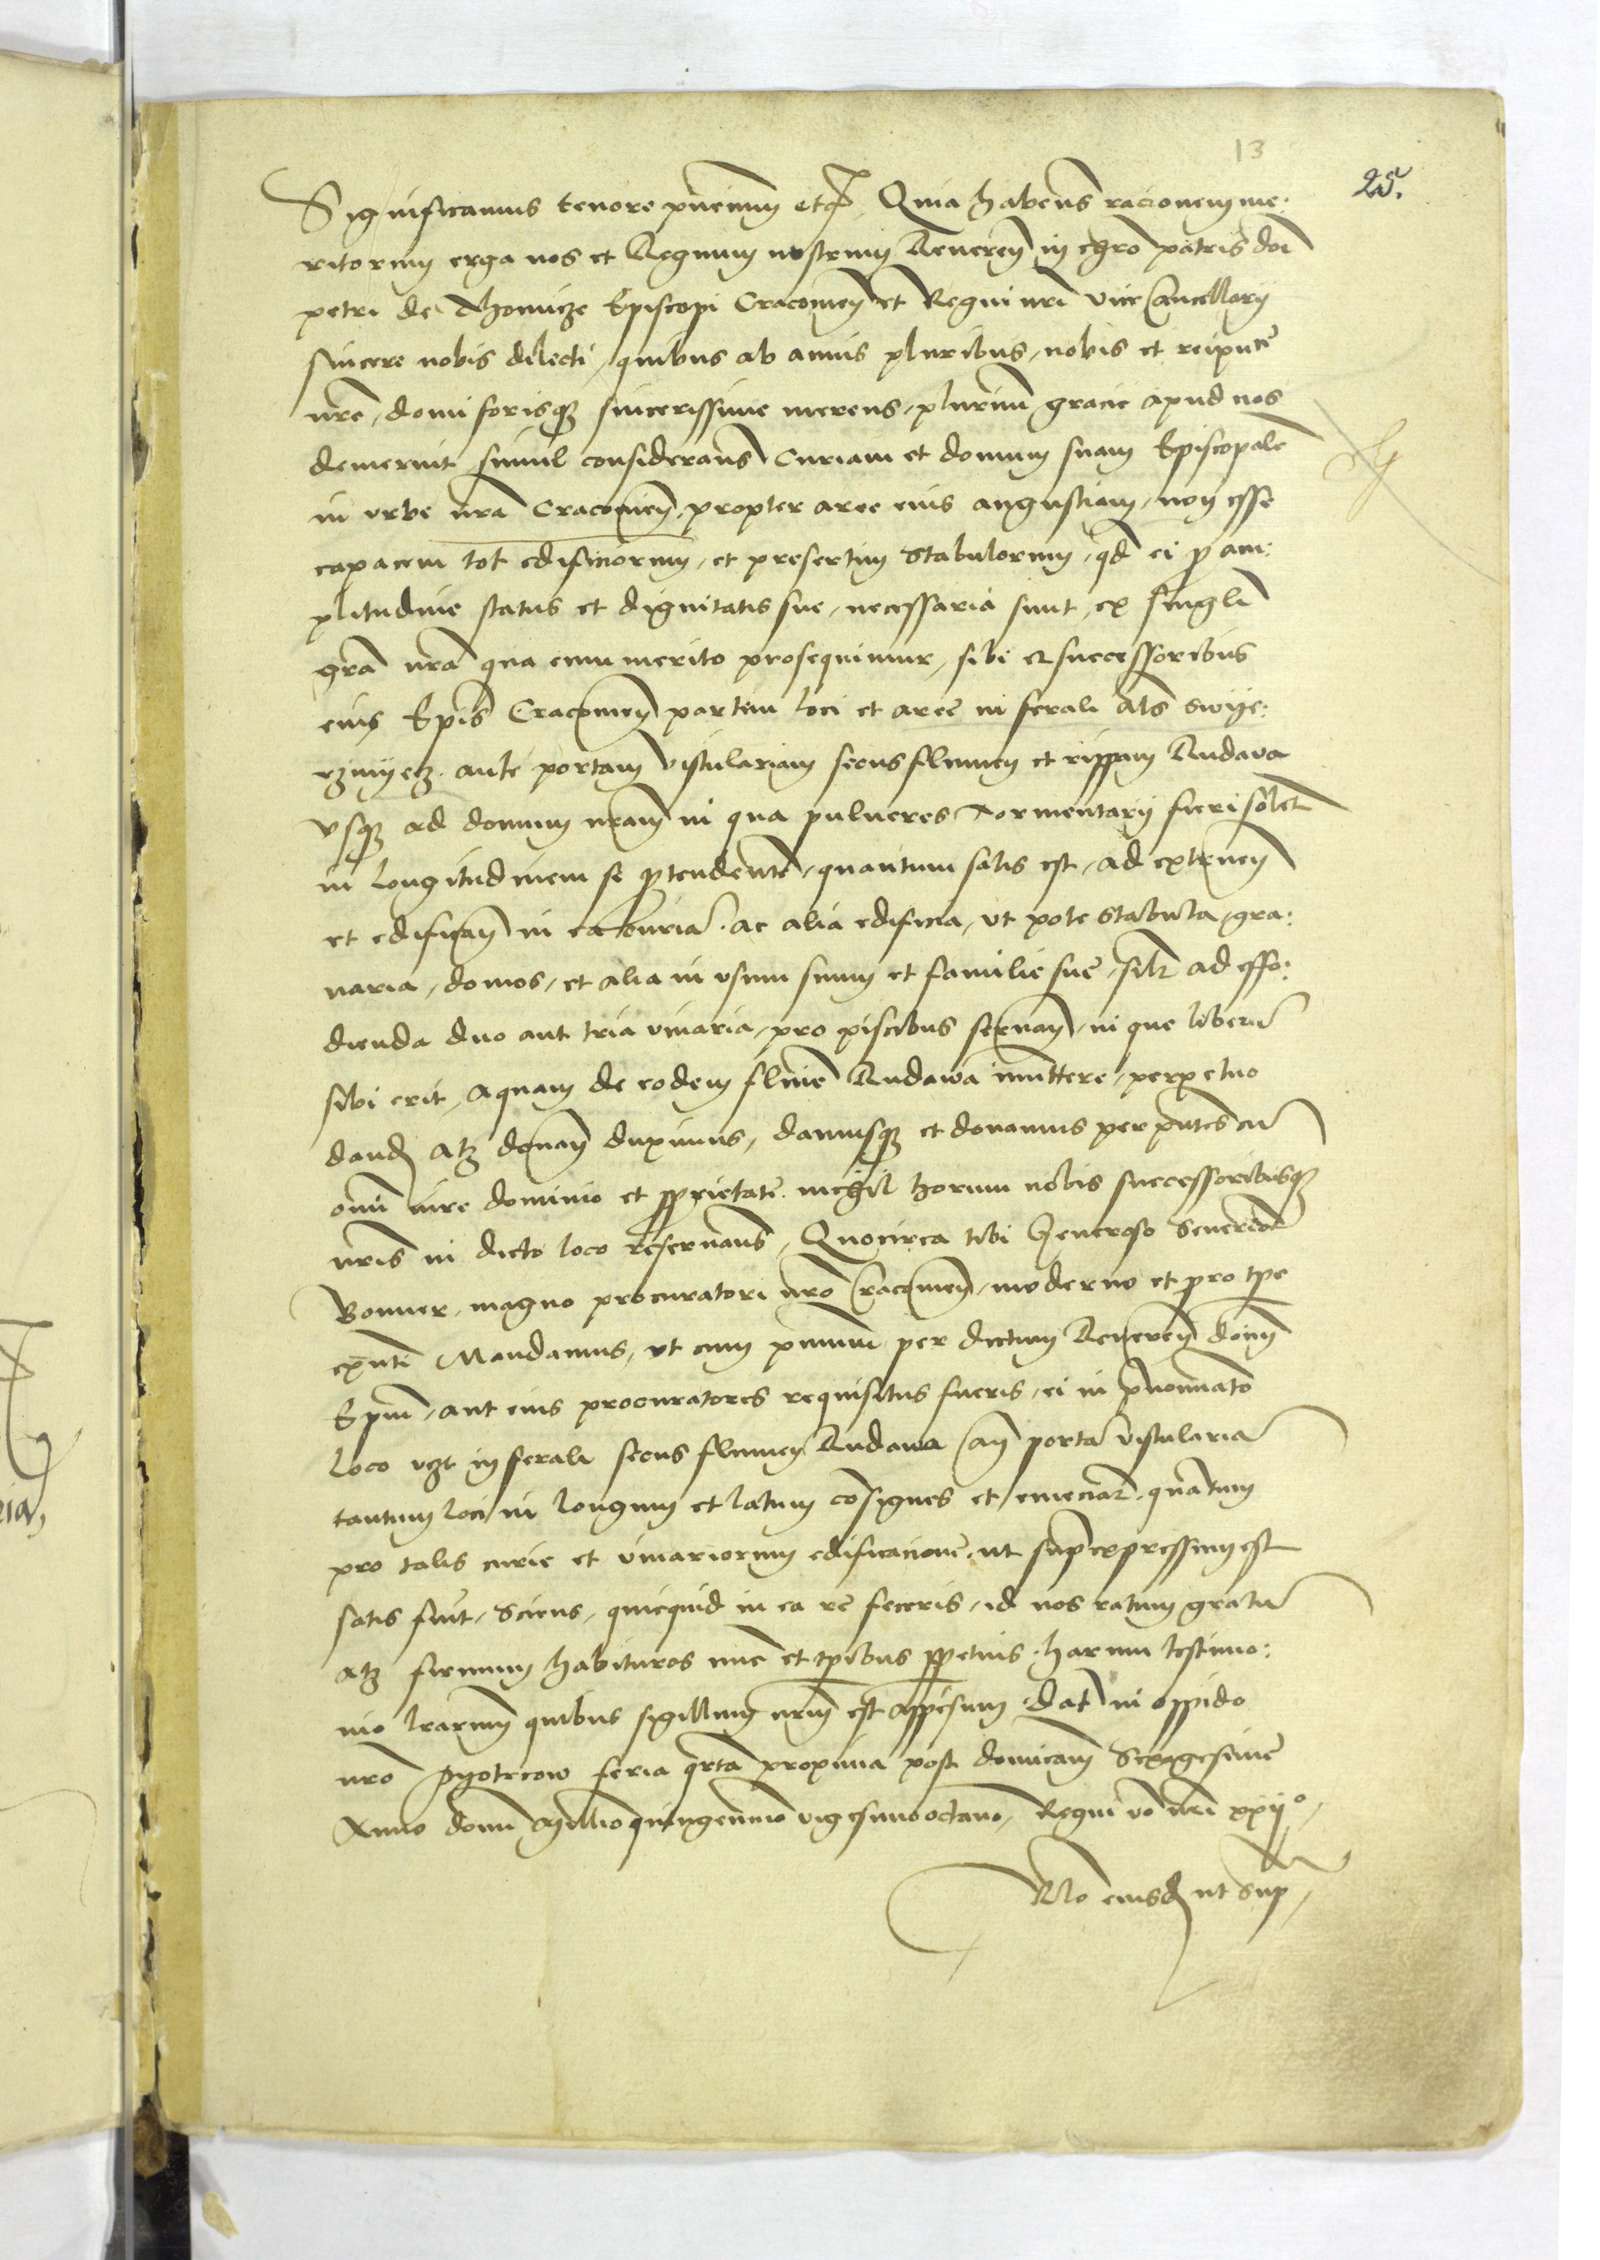 13
25.
Significamus tenore pñcium etc. Quia habeñs racionem me:
ritorum erga nos et Regnum nostrum Reuereñ in chro patris dñi
petri de Thomicze Episcopi Cracouieñ et Regni nri vice Cancellarij
sincere nobis dilecti, quibus ab annis pluribus, nobis et reipuce
nre, domi forisq; sincerissime merens, plurimũ gracie apud nos
demeruit simul considerañs Curiam et domum suam Episcopalẽ
in vrbe nra Cracouieñ, propter aree eius angustiam, non esse
capacem tot edificiorum, et presertim stabulorum, qd ei p am:
plitudine status et dignitatis sue, necessaria sunt, ex singli
gra nra qua eum merito prosequimur, sibi et successoribus
eius Epis Cracouieñ partem loci et aree in ferali als swije:
rzinyecz. ante portam vistulariam secus flumen et rippam Rudawa
vsq; ad domum nram in qua pulueres tormentarij fieri solet
in longitudinem se ptendentẽ, quantum satis est, ad extrueñ
et edificañ in ea curiã. ac alia edificia, ut pote stabula, gra:
naria, domos, et alia in vsum suum et familie sue, silr ad effo:
dienda duo aut tria viuaria, pro piscibus seruañ, in que liberũ
sibi erit, aquam de eodem flumẽ Rudawa imittere, perpetuo
dand atz donañ duximus, damusq; et donamus per pñtes cũ
omi iure dominio et pprietate. nichil horum nobis successoribusq;
nris in dicto loco reseruañs, Quocirca tibi Generoso Seuerino
Bonner, magno procuratori nro Cracouieñ, moderno et pro tpe
exñti Mandamus, ut cum primũ per dictum Reuereñ dnum
Epum, aut eius procuratores requisitus fueris, ei in pnominato
loco vzt in ferali secus flumen Rudawa añ portã vistulariã
tantum loci in longum et latum cõsignes et emeciar. quantum
pro talis curie et viuariorum edificacione, ut sup expressum est
satis sint, Sciens, quicquid in ea re feceris, id nos ratum gratũ
atz firmum habituros nunc et tpibus ppetuis. harum testimo:
nio lrarum quibus sigillum nrum est appesum. Dat in oppido
nro Pyotrcow feria qrta proxima post dominicam Sexagesime
Anno domi Millio quingentmo vigesimooctauo, Regni vo nri xxij°,
Rlo eiusd ut sup,